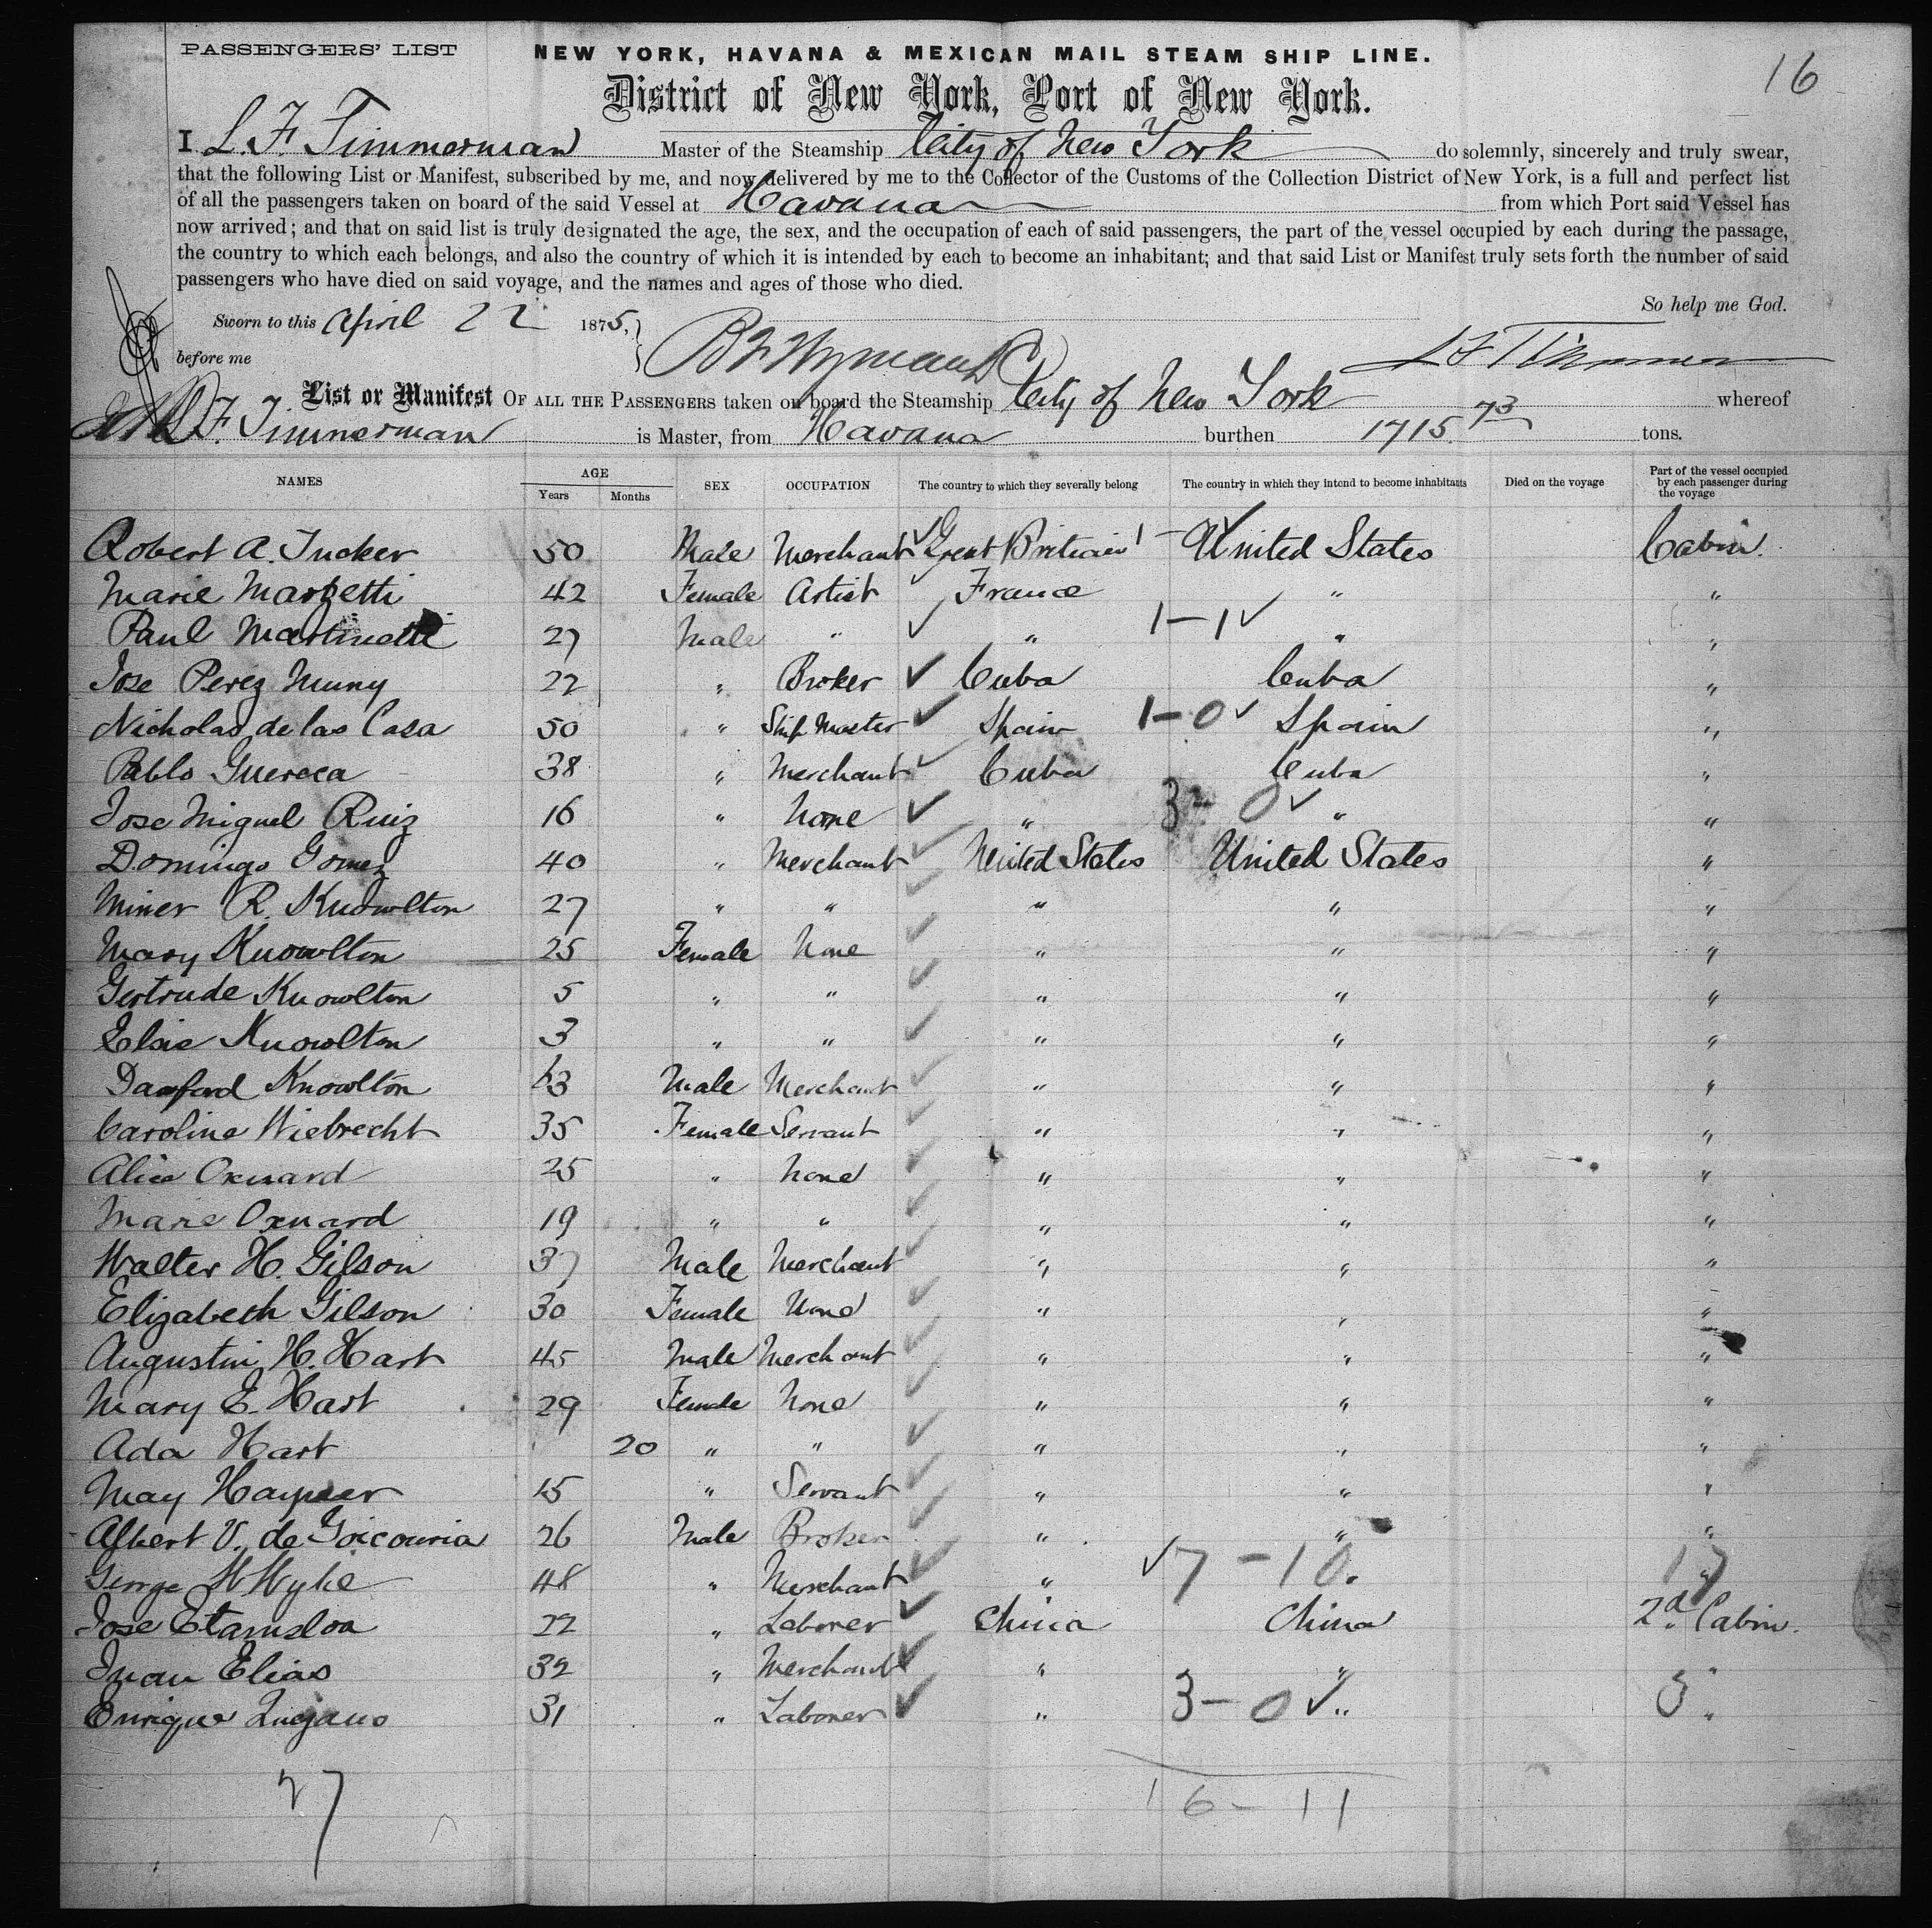 PASSENGERS' LIST
NEW YORK, HAVANA & MEXICAN MAIL STEAM SHIP LINE.
16
District of New York, Port of New York.
I L. F. Timmerman Master of the Steamship City of New York do solemnly, sincerely and truly swear,
that the following List or Manifest, subscribed by me, and now delivered by me to the Collector of the Customs of the Collection District of New York, is a full and perfect list
of all the passengers taken on board of the said Vessel at Havana from which Port said Vessel has
now arrived; and that on said list is truly designated the age, the sex, and the occupation of each of said passengers, the part of the vessel occupied by each during the passage,
the country to which each belongs, and also the country of which it is intended by each to become an inhabitant; and that said List or Manifest truly sets forth the number of said
passengers who have died on said voyage, and the names and ages of those who died.
So help me God.
Sworn to this April 22 1875,
before me
L F Timmerman
List or Manifest OF ALL THE PASSENGERS taken on board the Steamship City of New York whereof
L. F. Timmerman is Master, from Havana burthen 1715 73 tons.
NAMES AGE Years Months SEX OCCUPATION The country to which they severally belong The country in which they intend to become inhabitants Died on the voyage Part of the vessel occupied by each passenger during the voyage
Robert A. Tucker 50 Male Merchant ✓ Great Britain 1 - ✓ United States Cabin
Marie Martetti 42 Female Artist ✓ France " "
Paul Martinetti 27 Male " ✓ " 1-1 ✓ " "
Jose Perez Muny 22 " Broker ✓ Cuba Cuba "
Nicholas de las Casa 50 " Ship Master ✓ Spain 1-0 ✓ Spain "
Pablo Guereca 38 " Merchant ✓ Cuba Cuba "
Jose Miguel Ruiz 16 " None ✓ " 3-0 ✓ " "
Domingo Gomez 40 " Merchant ✓ United States United States "
Miner R. Knowlton 27 " " ✓ " " "
Mary Knowlton 25 Female None ✓ " " "
Gertrude Knowlton 5 " " ✓ " " "
Elsie Knowlton 3 " " ✓ " " "
Danford Knowlton 63 Male Merchant ✓ " " "
Caroline Wiebrecht 35 Female Servant ✓ " " "
Alice Oxnard 25 " None ✓ " " "
Marie Oxnard 19 " " ✓ " " "
Walter H. Gilson 37 Male Merchant ✓ " " "
Elizabeth Gilson 30 Female None ✓ " " "
Augustin H. Hart 45 Male Merchant ✓ " " "
Mary E. Hart 29 Female None ✓ " " "
Ada Hart 20 " " ✓ " " "
May 15 " Servant ✓ " " "
Albert V. de Goicouria 26 Male Broker ✓ " " "
George W Wylie 48 " Merchant ✓ " ✓ 7-10. 17 "
Jose 22 " Laborer ✓ China China 2d Cabin.
Juan Elias 32 " Merchant ✓ " " "
Enrique Lugano 31 " Laborer ✓ " 3-0 ✓ " 3 "
27
16-11